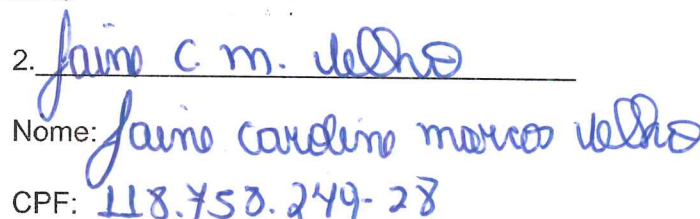 2. Jaine C. M. Velho
Nome: Jaine Caroline Marcos Velho
CPF: 118.750.249-28